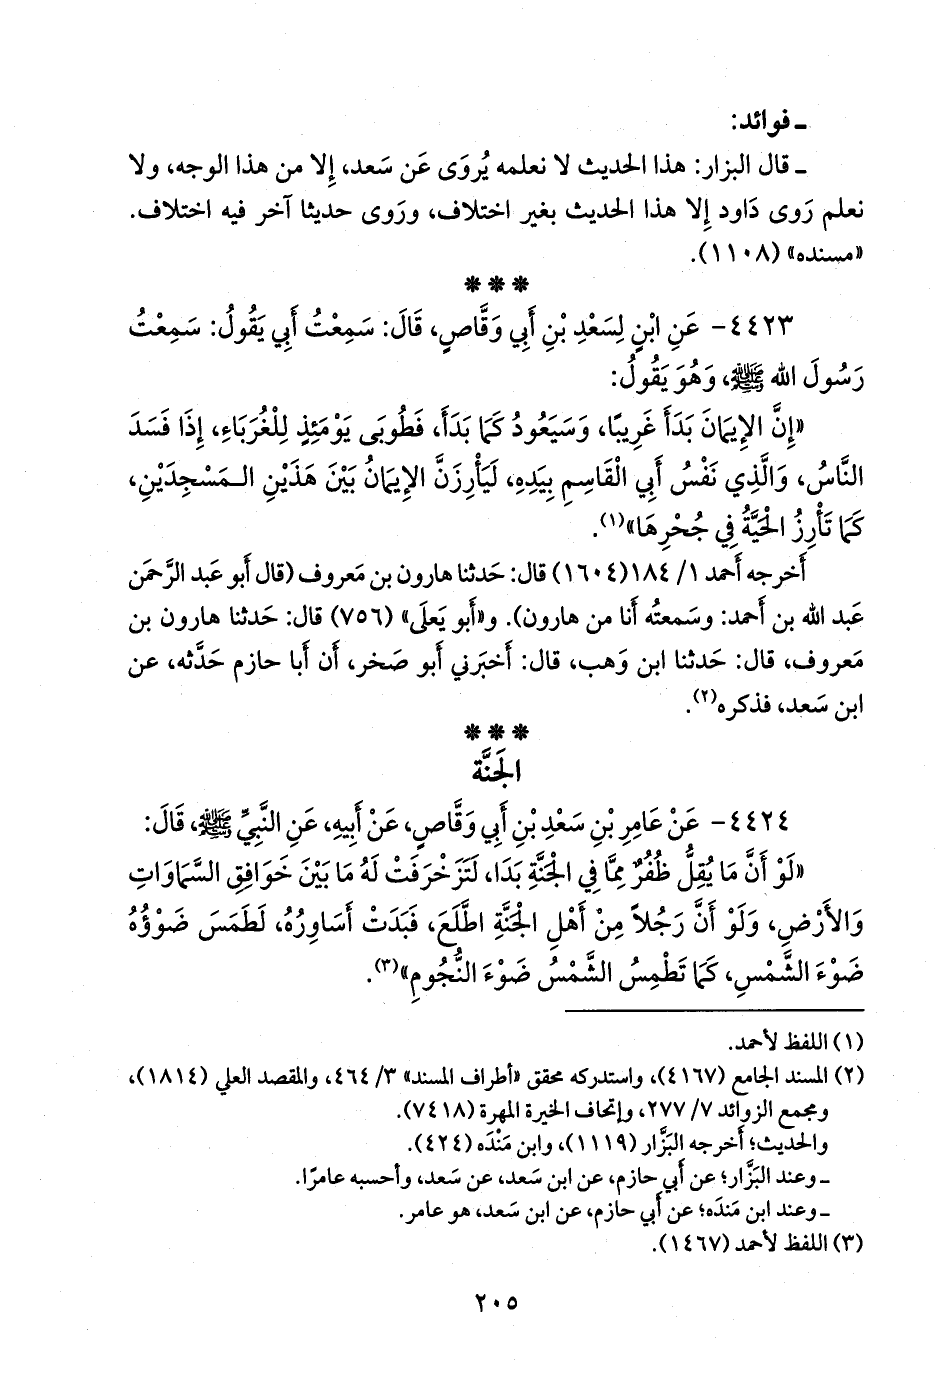 ـ فوائد:
ـ قال البزار: هذا الحديث لا نعلمه يُروَى عَن سَعد، إِلا من هذا الوجه، ولا
نعلم رَوى دَاود إِلا هذا الحديث بغير اختلاف، ورَوى حديثا آخر فيه اختلاف.
«مسنده» (١١٠٨).
* * *
٤٤٢٣- عَنِ ابْنٍ لِسَعْدِ بْنِ أَبِي وَقَّاصٍ، قَالَ: سَمِعْتُ أَبِي يَقُولُ: سَمِعْتُ
رَسُولَ الله ﷺ، وَهُوَ يَقُولُ:
«إِنَّ الإِيمَانَ بَدَأَ غَرِيبًا، وَسَيَعُودُ كَمَا بَدَأَ، فَطُوبَى يَوْمَئِذٍ لِلْغُرَبَاءِ، إِذَا فَسَدَ
النَّاسُ، وَالَّذِي نَفْسُ أَبِي الْقَاسِمِ بِيَدِهِ، لَيَأْرِزَنَّ الإِيمَانُ بَيْنَ هَذَيْنِ الـمَسْجِدَيْنِ،
كَمَا تَأْرِزُ الْحَيَّةُ فِي جُحْرِهَا»(١).
أَخرجه أَحمد ١/ ١٨٤(١٦٠٤) قال: حَدثنا هارون بن مَعروف (قال أَبو عَبد الرَّحمَن
عَبد الله بن أَحمد: وسَمعتُه أَنا من هارون). و«أَبو يَعلَى» (٧٥٦) قال: حَدثنا هارون بن
مَعروف، قال: حَدثنا ابن وَهب، قال: أَخبَرني أَبو صَخر، أَن أَبا حازم حَدَّثه، عن
ابن سَعد، فذكره(٢).
* * *
الجَنَّة
٤٤٢٤- عَنْ عَامِرِ بْنِ سَعْدِ بْنِ أَبِي وَقَّاصٍ، عَنْ أَبِيهِ، عَنِ النَّبِيِّ ﷺ، قَالَ:
«لَوْ أَنَّ مَا يُقِلُّ ظُفُرٌ مِمَّا فِي الْجَنَّةِ بَدَا، لَتَزَخْرَفَتْ لَهُ مَا بَيْنَ خَوَافِقِ السَّمَاوَاتِ
وَالأَرْضِ، وَلَوْ أَنَّ رَجُلاً مِنْ أَهْلِ الْجَنَّةِ اطَّلَعَ، فَبَدَتْ أَسَاوِرُهُ، لَطَمَسَ ضَوْؤُهُ
ضَوْءَ الشَّمْسِ، كَمَا تَطْمِسُ الشَّمْسُ ضَوْءَ النُّجُومِ»(٣).
(١) اللفظ لأحمد.
(٢) المسند الجامع (٤١٦٧)، واستدركه محقق «أطراف المسند» ٣/ ٤٦٤، والمقصد العلي (١٨١٤)،
ومجمع الزوائد ٧/ ٢٧٧، وإتحاف الخيرة المهرة (٧٤١٨).
والحديث؛ أَخرجه البَزَّار (١١١٩)، وابن مَنْدَه (٤٢٤).
ـ وعند البَزَّار؛ عن أَبي حازم، عن ابن سَعد، عن سَعد، وأحسبه عامرًا.
ـ وعند ابن مَندَه؛ عن أَبي حازم، عن ابن سَعد، هو عامر.
(٣) اللفظ لأحمد (١٤٦٧).
٢٠٥